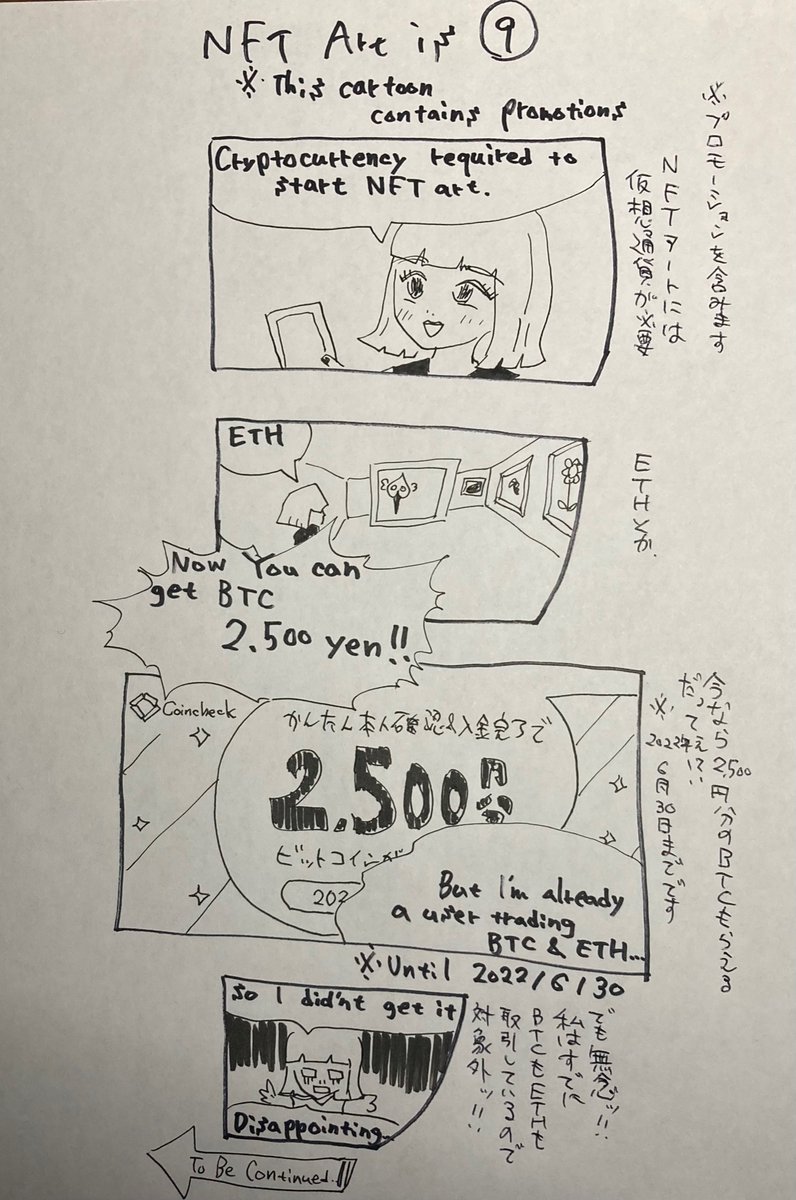 NFT Art is ⑨
※ This cartoon
contains promotions
※プロモーションを含みます
Cryptocurrency required to
start NFT art.
NFTアートには
仮想通貨が必要
ETH
ETHとか
Now You can
get BTC
2.500 yen!!
Coincheck
かんたん本人確認&入金完了で
2.500円
ビットコインが
202
今なら2,500円分のBTCもらえる
だって
※2022年
6月30日までです
But I'm already
a user trading
BTC & ETH...
※Until 2022/6/30
So I did'nt get it
Disappointing...
でも無念ッ!!
私はすでに
BTCもETHも
取引しているので
対象外ッ!!
To Be Continued..